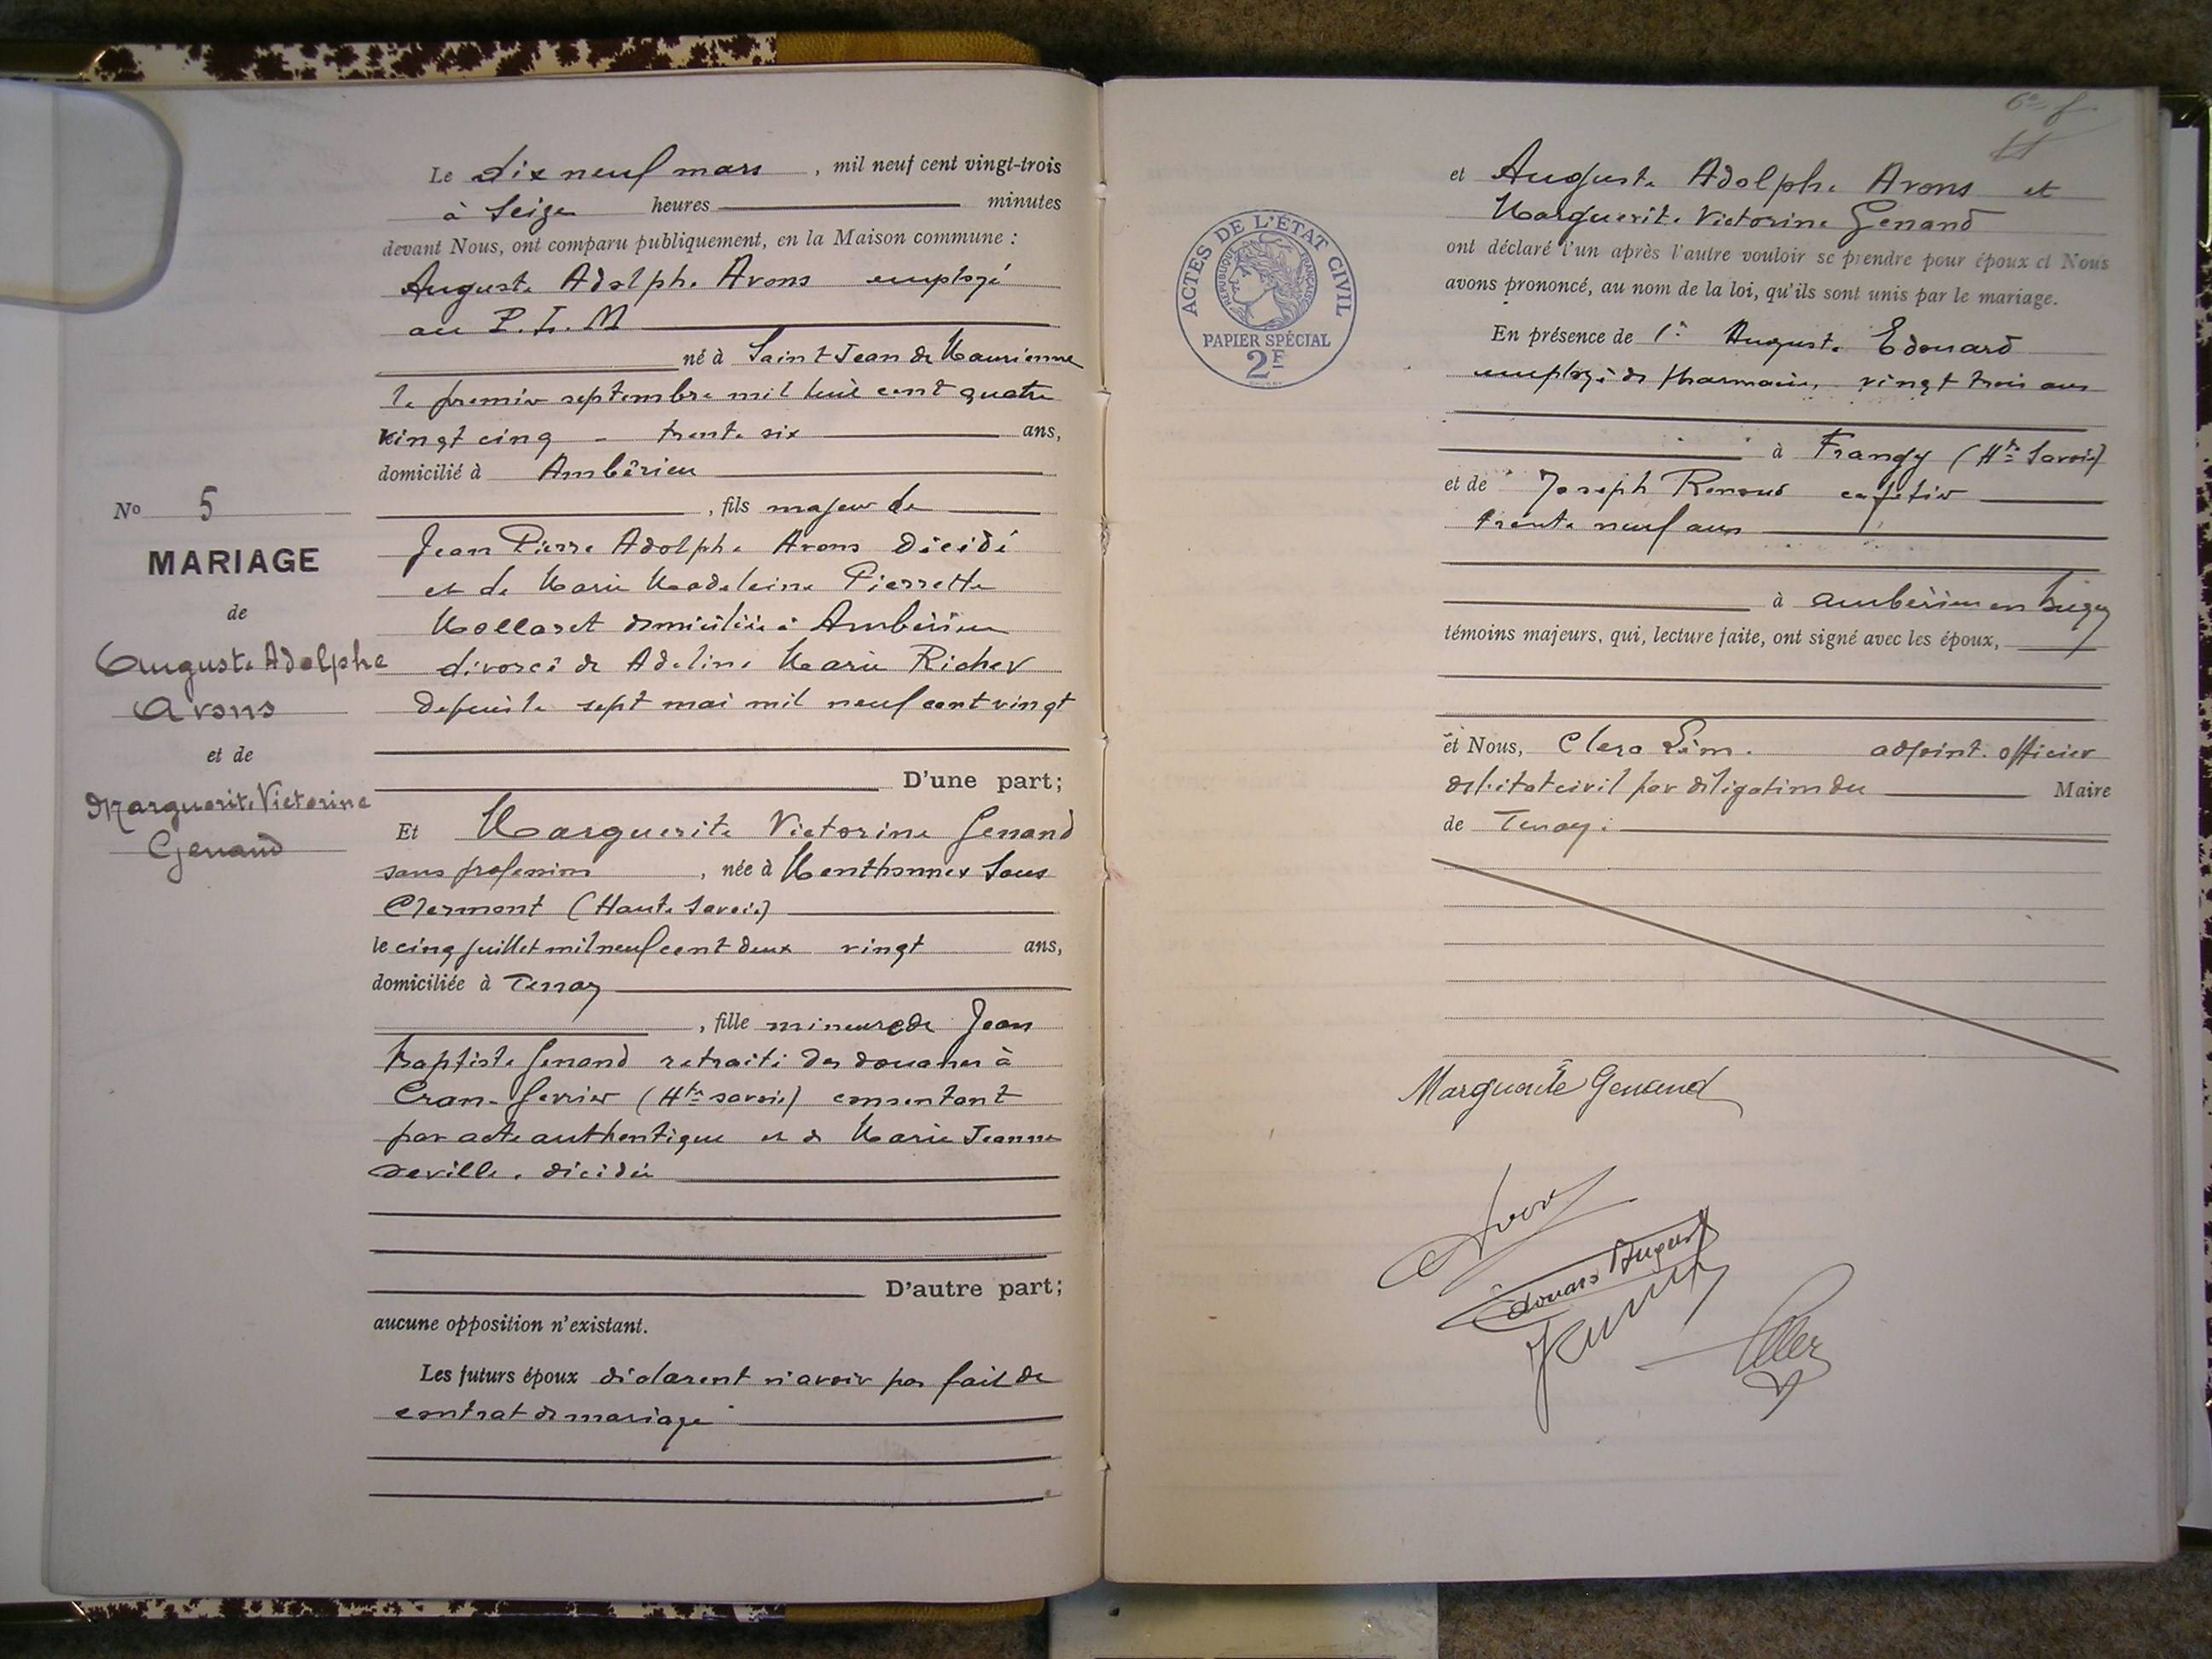 Le dix neuf mars , mil neuf cent vingt-trois
à seize heures minutes
devant Nous, ont comparu publiquement, en la Maison commune :
Auguste Adolphe Avons employé
au P. L. M
né à Saint Jean de Maurienne
le premier septembre mil huit cent quatre
vingt cinq - trente six ans,
domicilié à Ambérieu
, fils majeur de
Jean Pierre Adolphe Avons décédé
et de Marie Madeleine Pierrette
Mollaret domiciliée à Ambérieu
divorcé de Adeline Marie Richer
depuis le sept mai mil neuf cent vingt
D'une part;
Et Marguerite Victorine Genand
sans profession , née à Menthonnex Sous
Clermont (Haute Savoie)
le cinq juillet mil neuf cent deux vingt ans,
domiciliée à Tenay
, fille mineure de Jean
Baptiste Genand retraité des douanes à
Cran-Gevrier (Hte savoie) consentant
par acte authentique et de Marie Jeanne
Deville, décédée
D'autre part;
aucune opposition n'existant.
Les futurs époux déclarent n'avoir pas fait de
contrat de mariage
No 5
MARIAGE
de
Auguste Adolphe
Avons
et de
Marguerite Victorine
Genand
ACTES DE L'ÉTAT CIVIL
RÉPUBLIQUE FRANÇAISE
PAPIER SPÉCIAL
2F
et Auguste Adolphe Avons et
Marguerite Victorine Genand
ont déclaré l'un après l'autre vouloir se prendre pour époux et Nous
avons prononcé, au nom de la loi, qu'ils sont unis par le mariage.
En présence de 1° Auguste Edouard
employé de pharmacie, vingt trois ans
à Frangy (Hte Savoie)
et de Joseph Renaud cafetier
trente neuf ans
à ambérieu en bugey
témoins majeurs, qui, lecture faite, ont signé avec les époux,
et Nous, Clerc adjoint officier
de l'état civil par délégation du Maire
de Tenay.
Marguerite Genand
Edouard Auguste